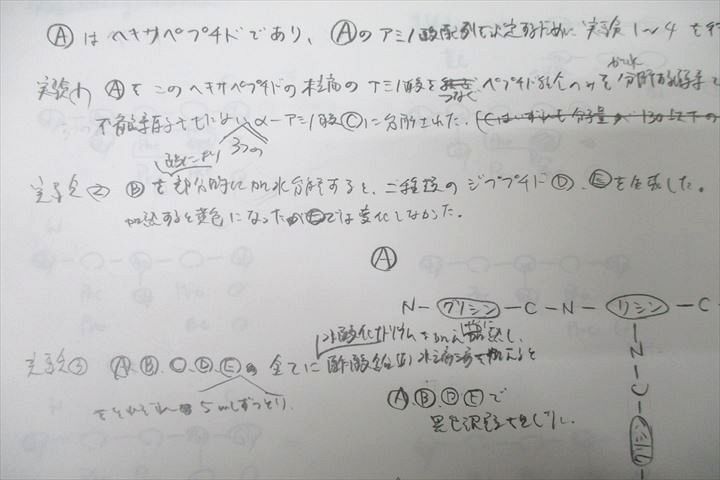 Ⓐはヘキサペプチドであり、Ⓐのアミノ酸配列を決定するために実験1〜4を行
かすい
実験(1) Ⓐをこのヘキサペプチドの末端のアミノ酸を つなぐ ペプチド結合のみを加水分解する酵素で
不斉炭素原子をもたないα-アミノ酸Ⓒに分解された。
3つの
実験② Ⓑを部分的に加水分解すると、二種類のジププチドⒹ、Ⓔを生成した。
加熱すると黄色になったがⒺでは変化しなかった。
Ⓐ
N-グリシン-C-N-リシン-C
N
C
実験③ Ⓐ.Ⓑ.Ⓒ.Ⓓ.Ⓔ 全てに 水酸化ナトリウムを加え 加熱し、
酢酸鉛(Ⅱ)水溶液を加えると
をそれぞれ 5mLずつとり、
Ⓐ Ⓑ Ⓓ Ⓔで
黒色沈殿を生じた。